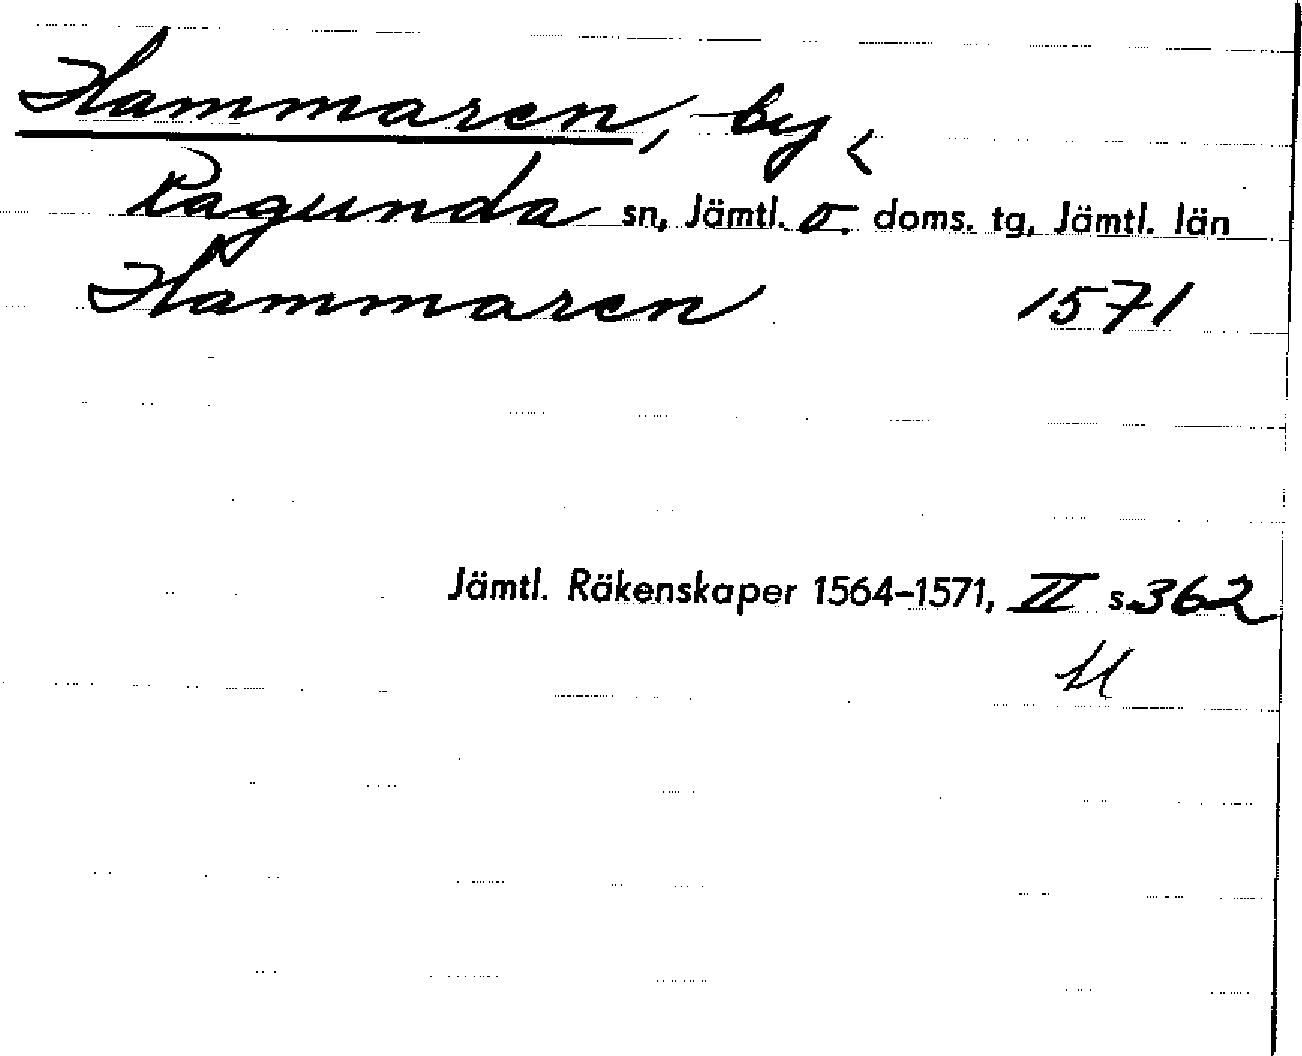 Hammaren, by <
Ragunda sn, Jämtl. ö. doms. tg, Jämtl. län
Hammaren 1571
Jämtl. Räkenskaper 1564-1571, II s. 362